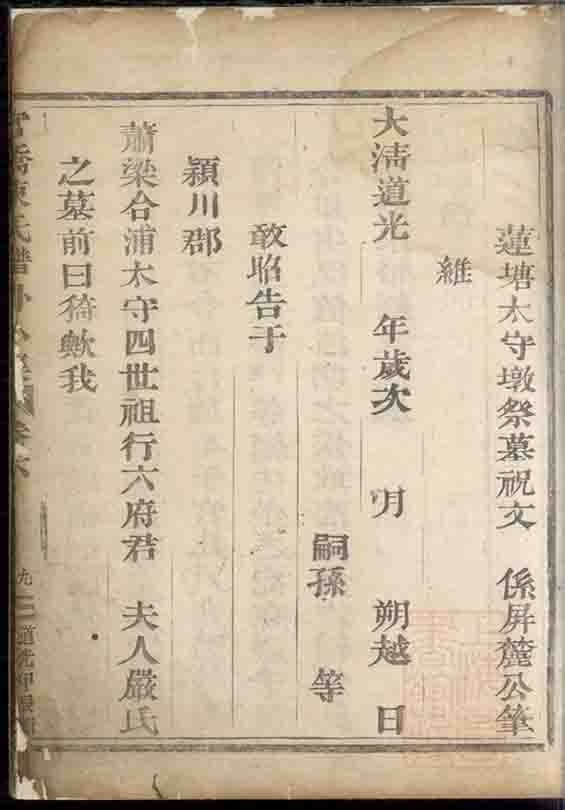 蓮塘太守墩祭墓祝文 係屏麓公筆
維
大淸道光 年歲次 月 朔越 日
嗣孫 等
敢昭告于
潁川郡
蕭梁合浦太守四世祖行六府君 夫人嚴氏
之墓前曰猗歟我
陳氏譜 卷六
九 道光甲辰